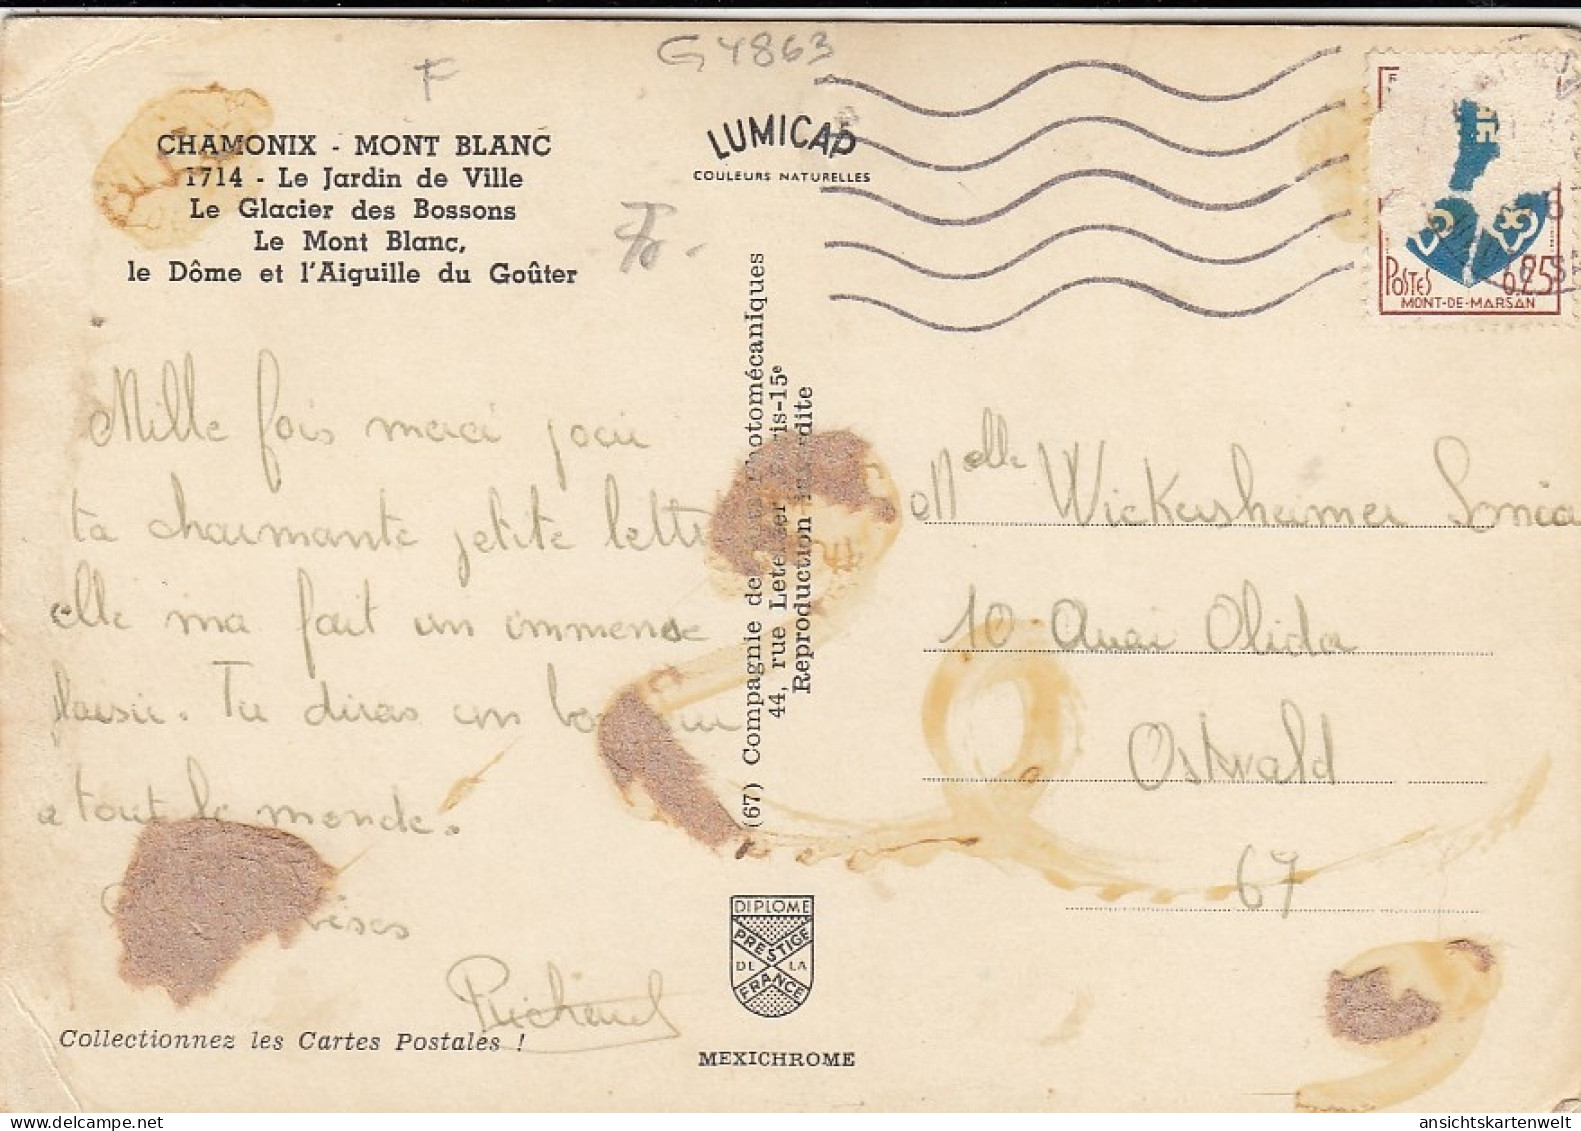 G4863
F
CHAMONIX - MONT BLANC
1714 - Le Jardin de Ville
Le Glacier des Bossons
Le Mont Blanc,
le Dôme et l'Aiguille du Goûter
LUMICAP
COULEURS NATURELLES
POSTES 0,25
MONT-DE-MARSAN
Mille fois merci pour
ta charmante petite lettre
elle ma fait un immense
plaisir. Tu diras un bonjour
a tout le monde.
Richard
(67) Compagnie des Arts Photomécaniques
44, rue Letellier Paris-15e
Reproduction interdite
Melle Wickersheimer Sonia
10 Quai Olida
Ostwald
67
DIPLOME
PRESTIGE
DE LA
FRANCE
Collectionnez les Cartes Postales !
MEXICHROME
ansichtskartenwelt